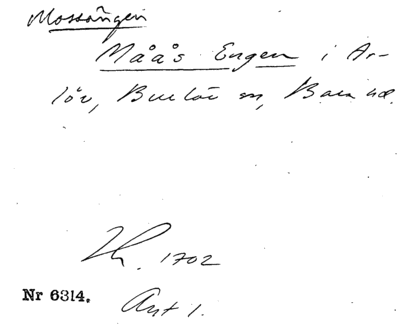 Mossängen
Måås Engen i Ar-
löv, Burlöv sn, Bara hd.
Lh. 1702
Nr 6314. Avt 1.